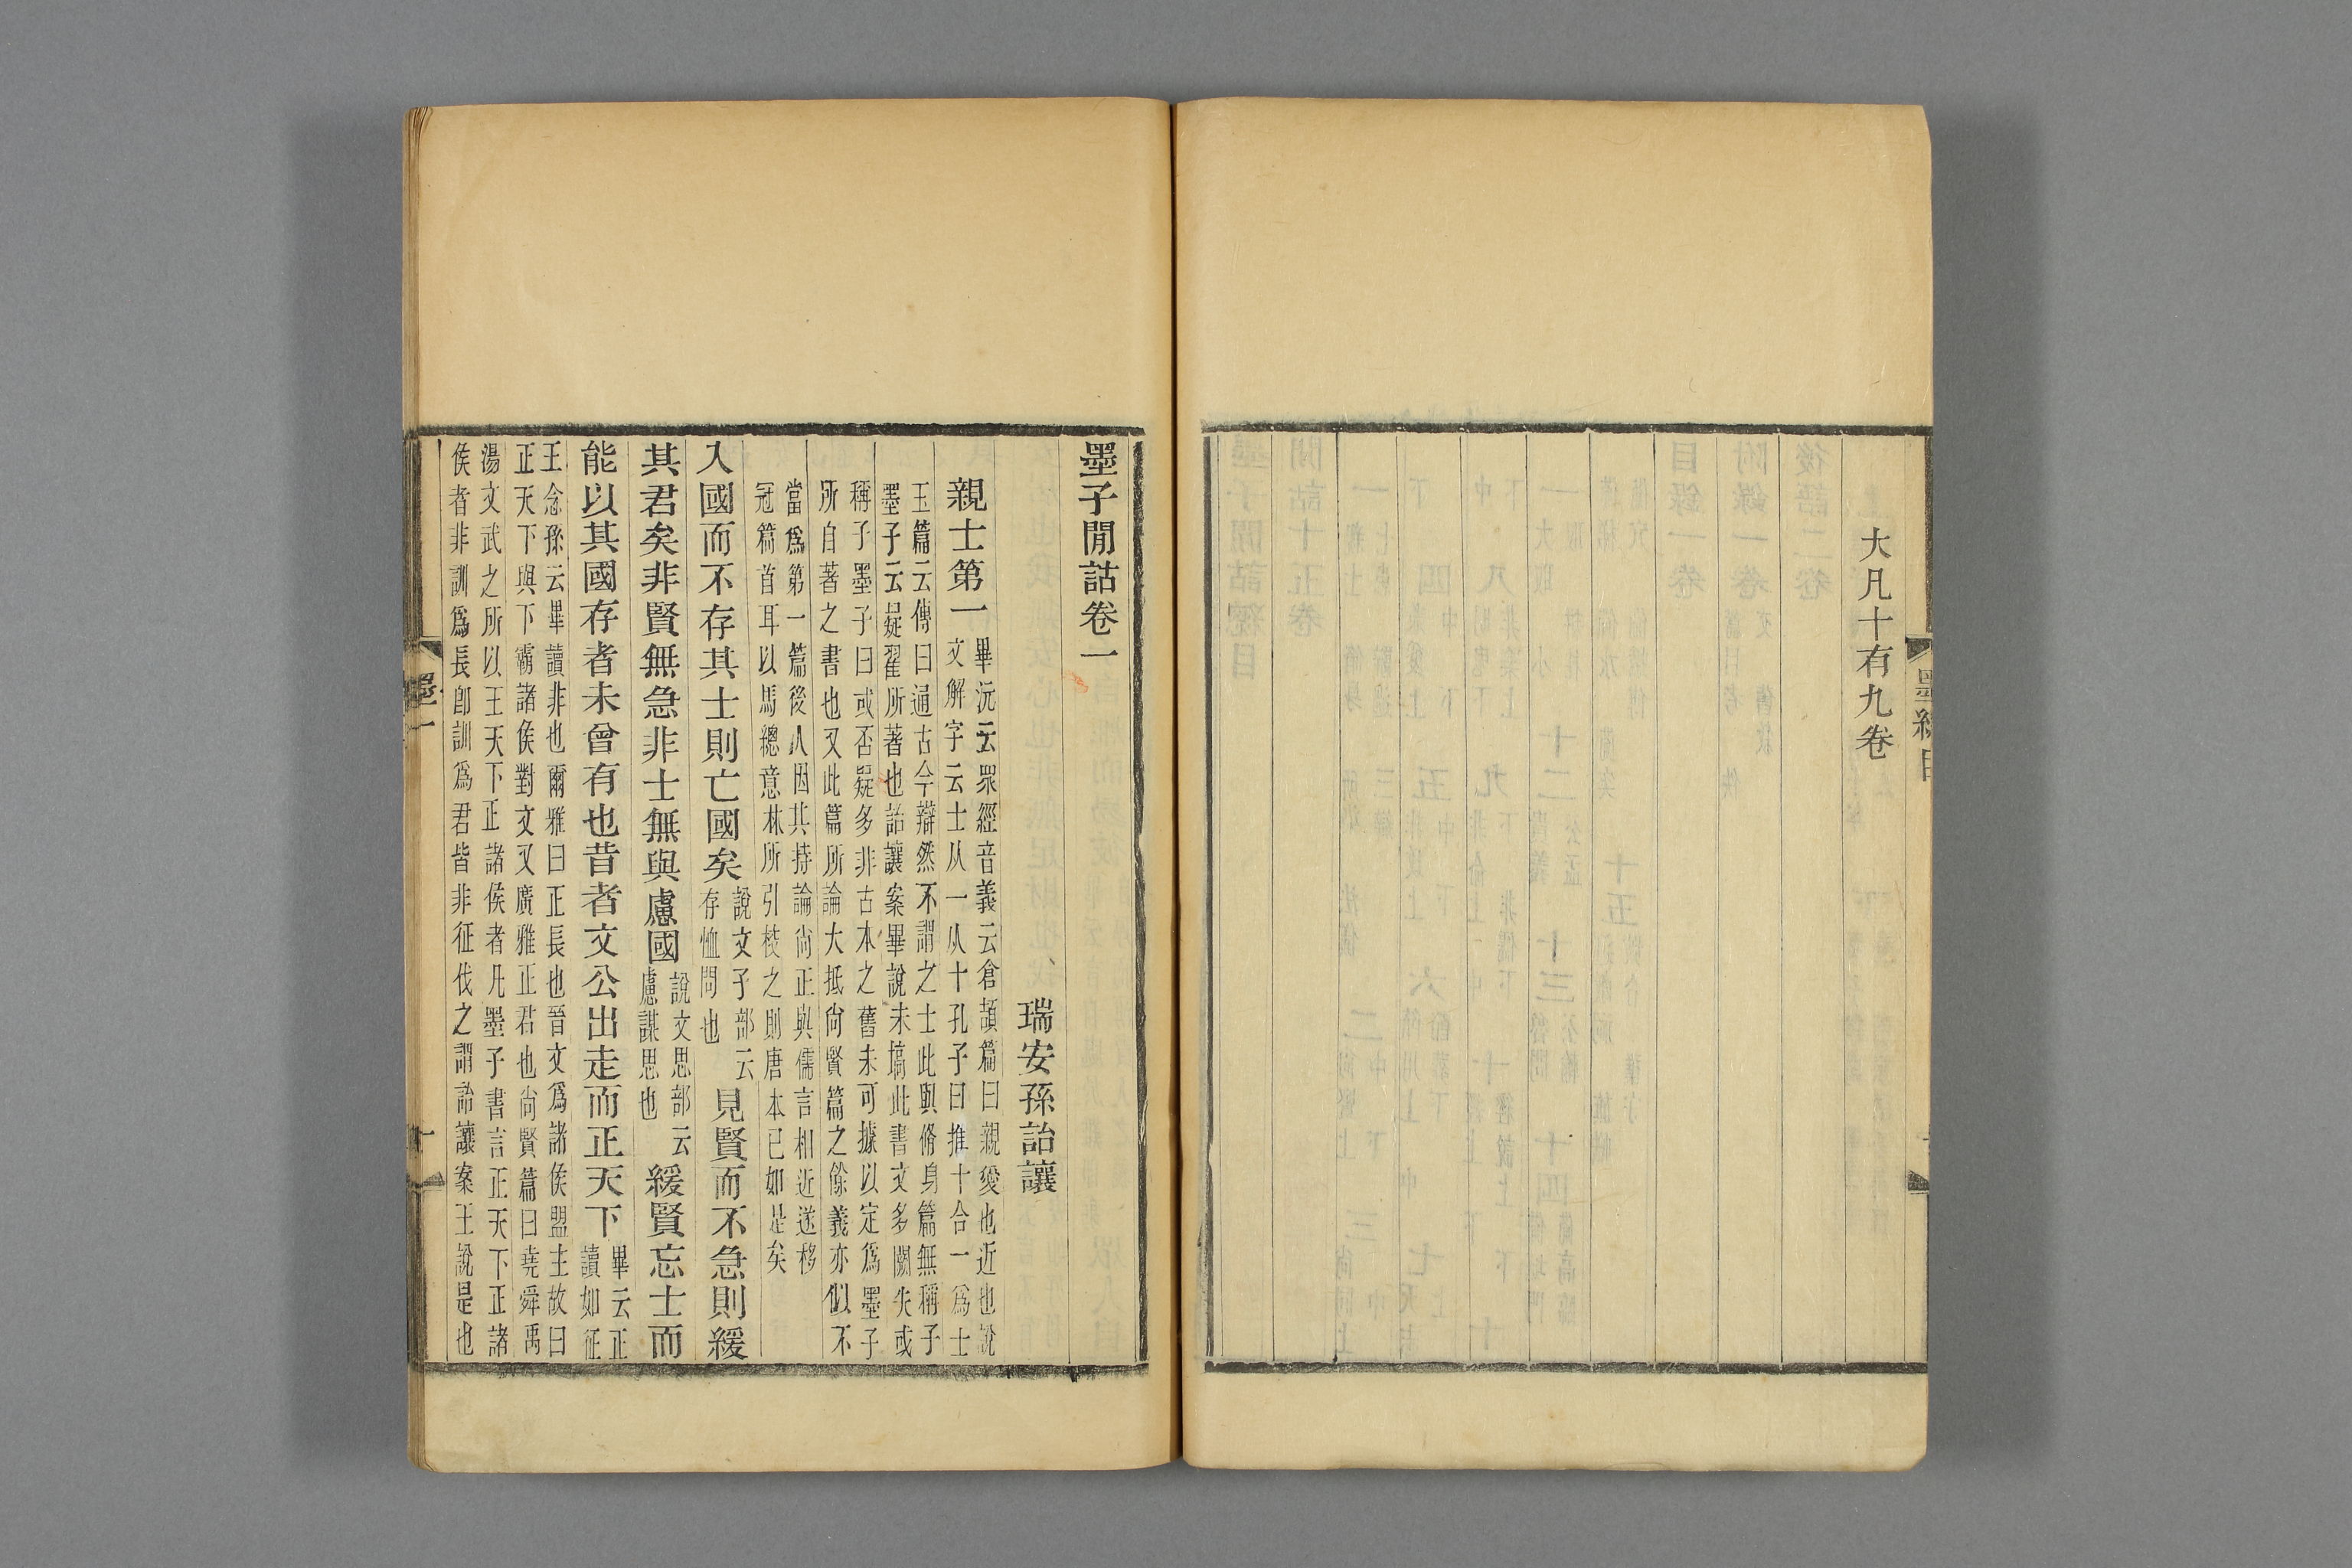 大凡十有九卷
墨子閒詁卷一
瑞安孫詒讓
親士第一
畢沅云眾經音義云倉頡篇曰親愛也近也說
文解字云士从一从十孔子曰推十合一爲士
玉篇云傳曰通古今辯然不謂之士此與脩身篇無稱子
墨子云疑翟所著也詒讓案畢說未塙此書文多闕失或
稱子墨子曰或否疑多非古本之舊未可據以定爲墨子
所自著之書也又此篇所論大抵尚賢篇之餘義亦似不
當爲第一篇後人因其持論尚正與儒言相近遂移
冠篇首耳以馬總意林所引校之則唐本已如是矣
入國而不存其士則亡國矣
說文子部云
存恤問也
見賢而不急則緩
其君矣非賢無急非士無與慮國
說文思部云
慮謀思也
緩賢忘士而
能以其國存者未曾有也昔者文公出走而正天下
畢云正
讀如征
王念孫云畢讀非也爾雅曰正長也晉文爲諸侯盟主故曰
正天下與下霸諸侯對文又廣雅正君也尚賢篇曰堯舜禹
湯文武之所以王天下正諸侯者凡墨子書言正天下正諸
侯者非訓爲長卽訓爲君皆非征伐之謂詒讓案王說是也
墨一
一